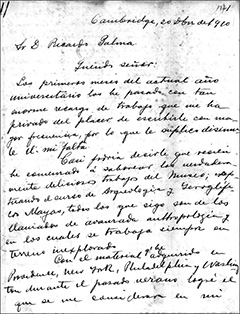 11
1171
Cambridge, 20 Dbre de 1910
Sr D Ricardo Palma
Querido señor:
Los primeros meses del actual año
universitario los he pasado con tan
enorme recargo de trabajo que me ha
privado del placer de escribirle con mayor
frecuencia, por lo que le suplico disimule
le mi falta.
Casi podria decirle que recien
he comenzado á saborear los verdadera-
mente deliciosos trabajos del Museo;
el curso de Arqueologia y Geroglifi-
cos Mayas, todos los que sigo son de los
llamados de avanzada anthropologia y
en los cuales se trabaja siempre en
terreno inexplorado.
Con el material qe he adquirido en
Providence, New York, Philadelphia y Washing
ton durante el pasado verano logré el
que se me considerara en mi